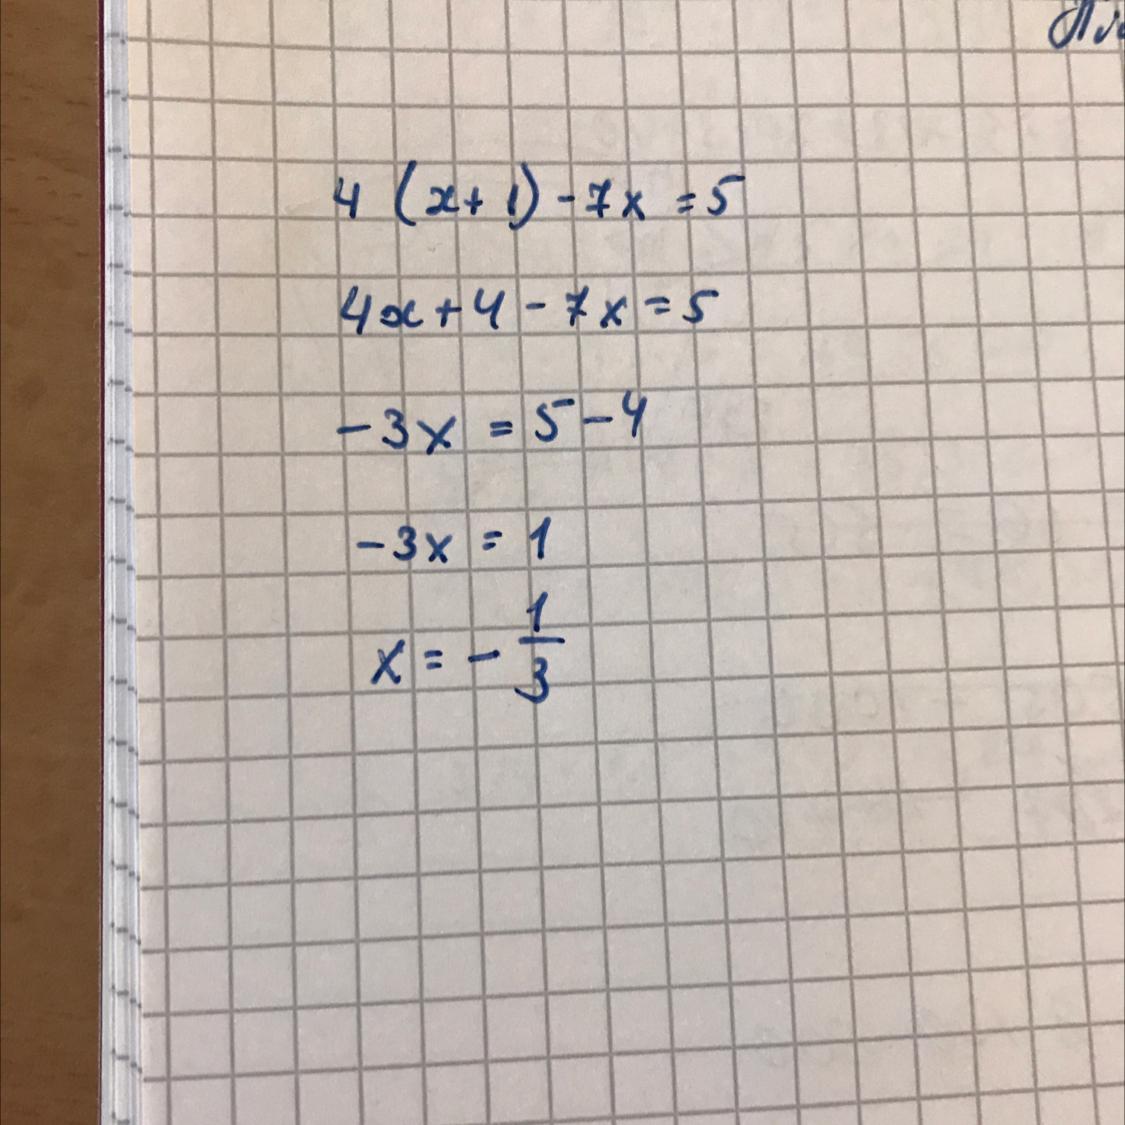 4 (x+1) - 7x = 5
4x + 4 - 7x = 5
-3x = 5 - 4
-3x = 1
x = - 1/3